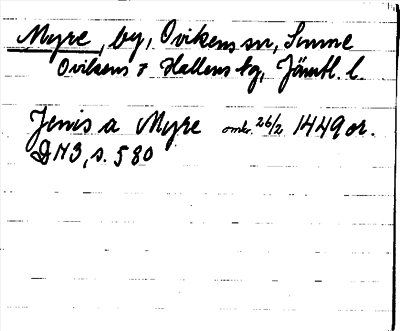 Myre, by, Ovikens sn, Sunne
Ovikens & Hallens tg, Jämtl. l.
Jenis a Myre omkr. 26/2 1449 or.
DN3, s. 580